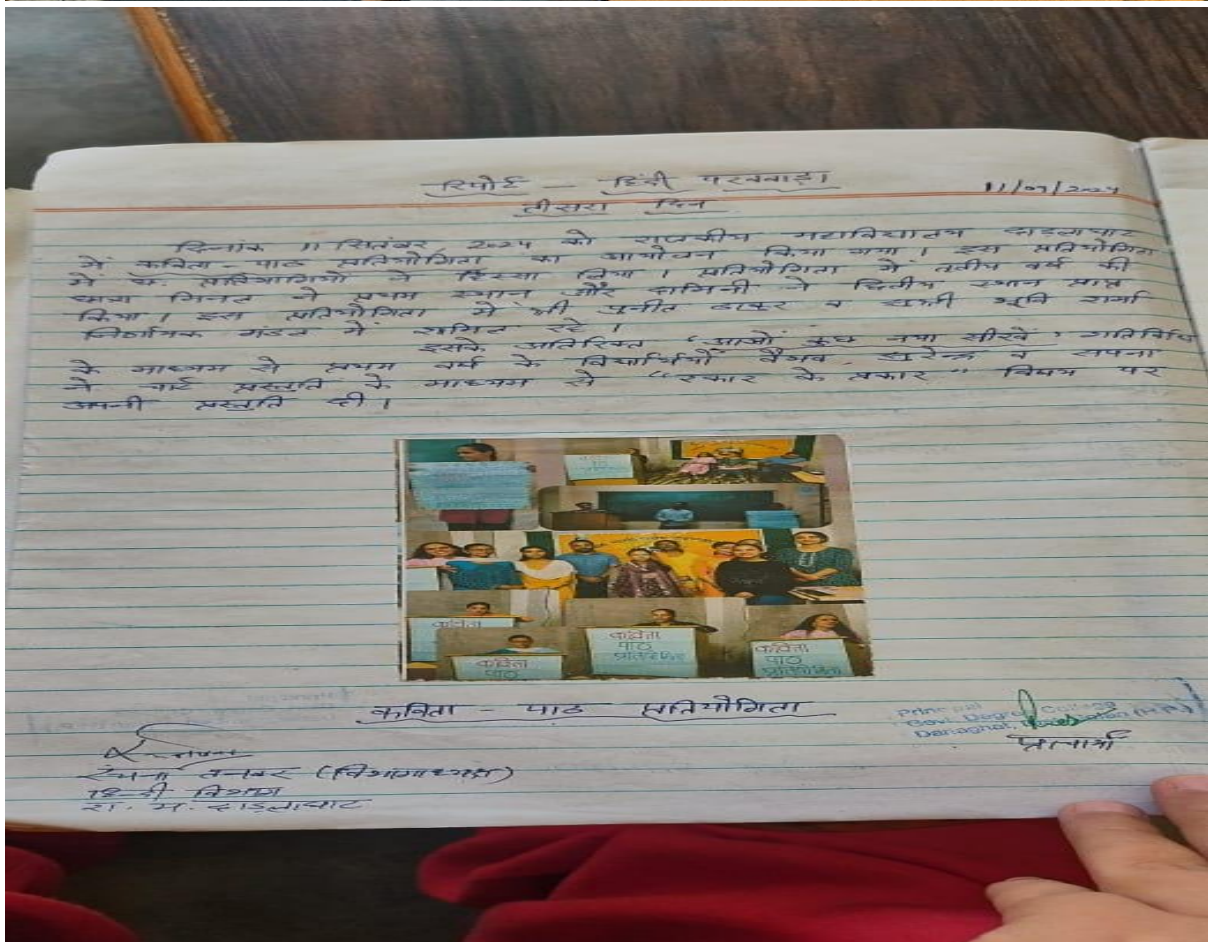 रिपोर्ट – हिंदी पखवाड़ा
11/09/2024
तीसरा दिन
दिनांक 11 सितंबर, 2024 को राजकीय महाविद्यालय दाड़लाघाट
में कविता-पाठ प्रतियोगिता का आयोजन किया गया। इस प्रतियोगिता
में प्रतिभागियों ने हिस्सा लिया। प्रतियोगिता में तृतीय वर्ष की
छात्रा ने प्रथम स्थान और ने द्वितीय स्थान प्राप्त
किया। इस प्रतियोगिता में श्री पुनीत ठाकुर व सुश्री भूमि शर्मा
निर्णायक मंडल में शामिल रहे।
इसके अतिरिक्त "आओं कुछ नया सीखें" गतिविधि
के माध्यम से प्रथम वर्ष के विद्यार्थियों वैभव, सुरेन्द्र व सपना
ने चार्ट प्रस्तुति के माध्यम से "रकार के प्रकार" विषय पर
अपनी प्रस्तुति दी।
कविता
कविता
पाठ
कविता
पाठ
प्रतियोगिता
कविता
पाठ
प्रतियोगिता
कविता - पाठ प्रतियोगिता
Principal
Govt. Degree College
प्राचार्या
(विभागाध्यक्ष)
हिन्दी विभाग
रा. म. दाड़लाघाट